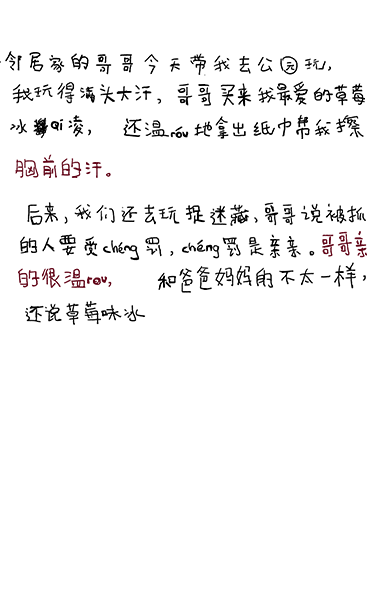 邻居家的哥哥今天带我去公园玩,
我玩得满头大汗，哥哥买来我最爱的草莓
冰qi凌， 还温róu地拿出纸巾帮我擦
胸前的汗。
后来,我们还去玩捉迷藏,哥哥说被抓
的人要受chéng罚，chéng罚是亲亲。哥哥亲
的很温rou, 和爸爸妈妈的不太一样，
还说草莓味冰